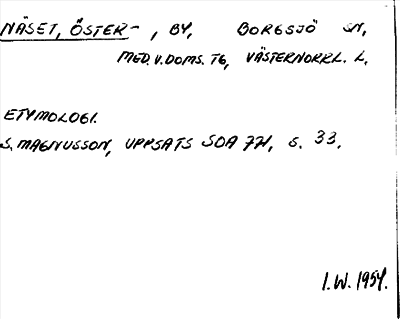 NÄSET, ÖSTER-, BY, BORGSJÖ SN,
MED. V. DOMS. TG, VÄSTERNORRL. L.
ETYMOLOGI.
S. MAGNUSSON, UPPSATS SOA 771, S. 33.
I.W. 1954.